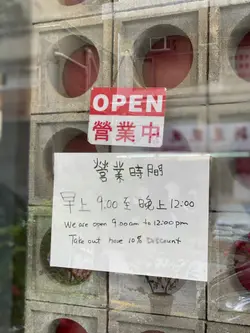 OPEN
營業中
營業時間
早上 9:00 至 晚上 12:00
We are open 9:00am to 12:00pm
Take out have 10% Discount